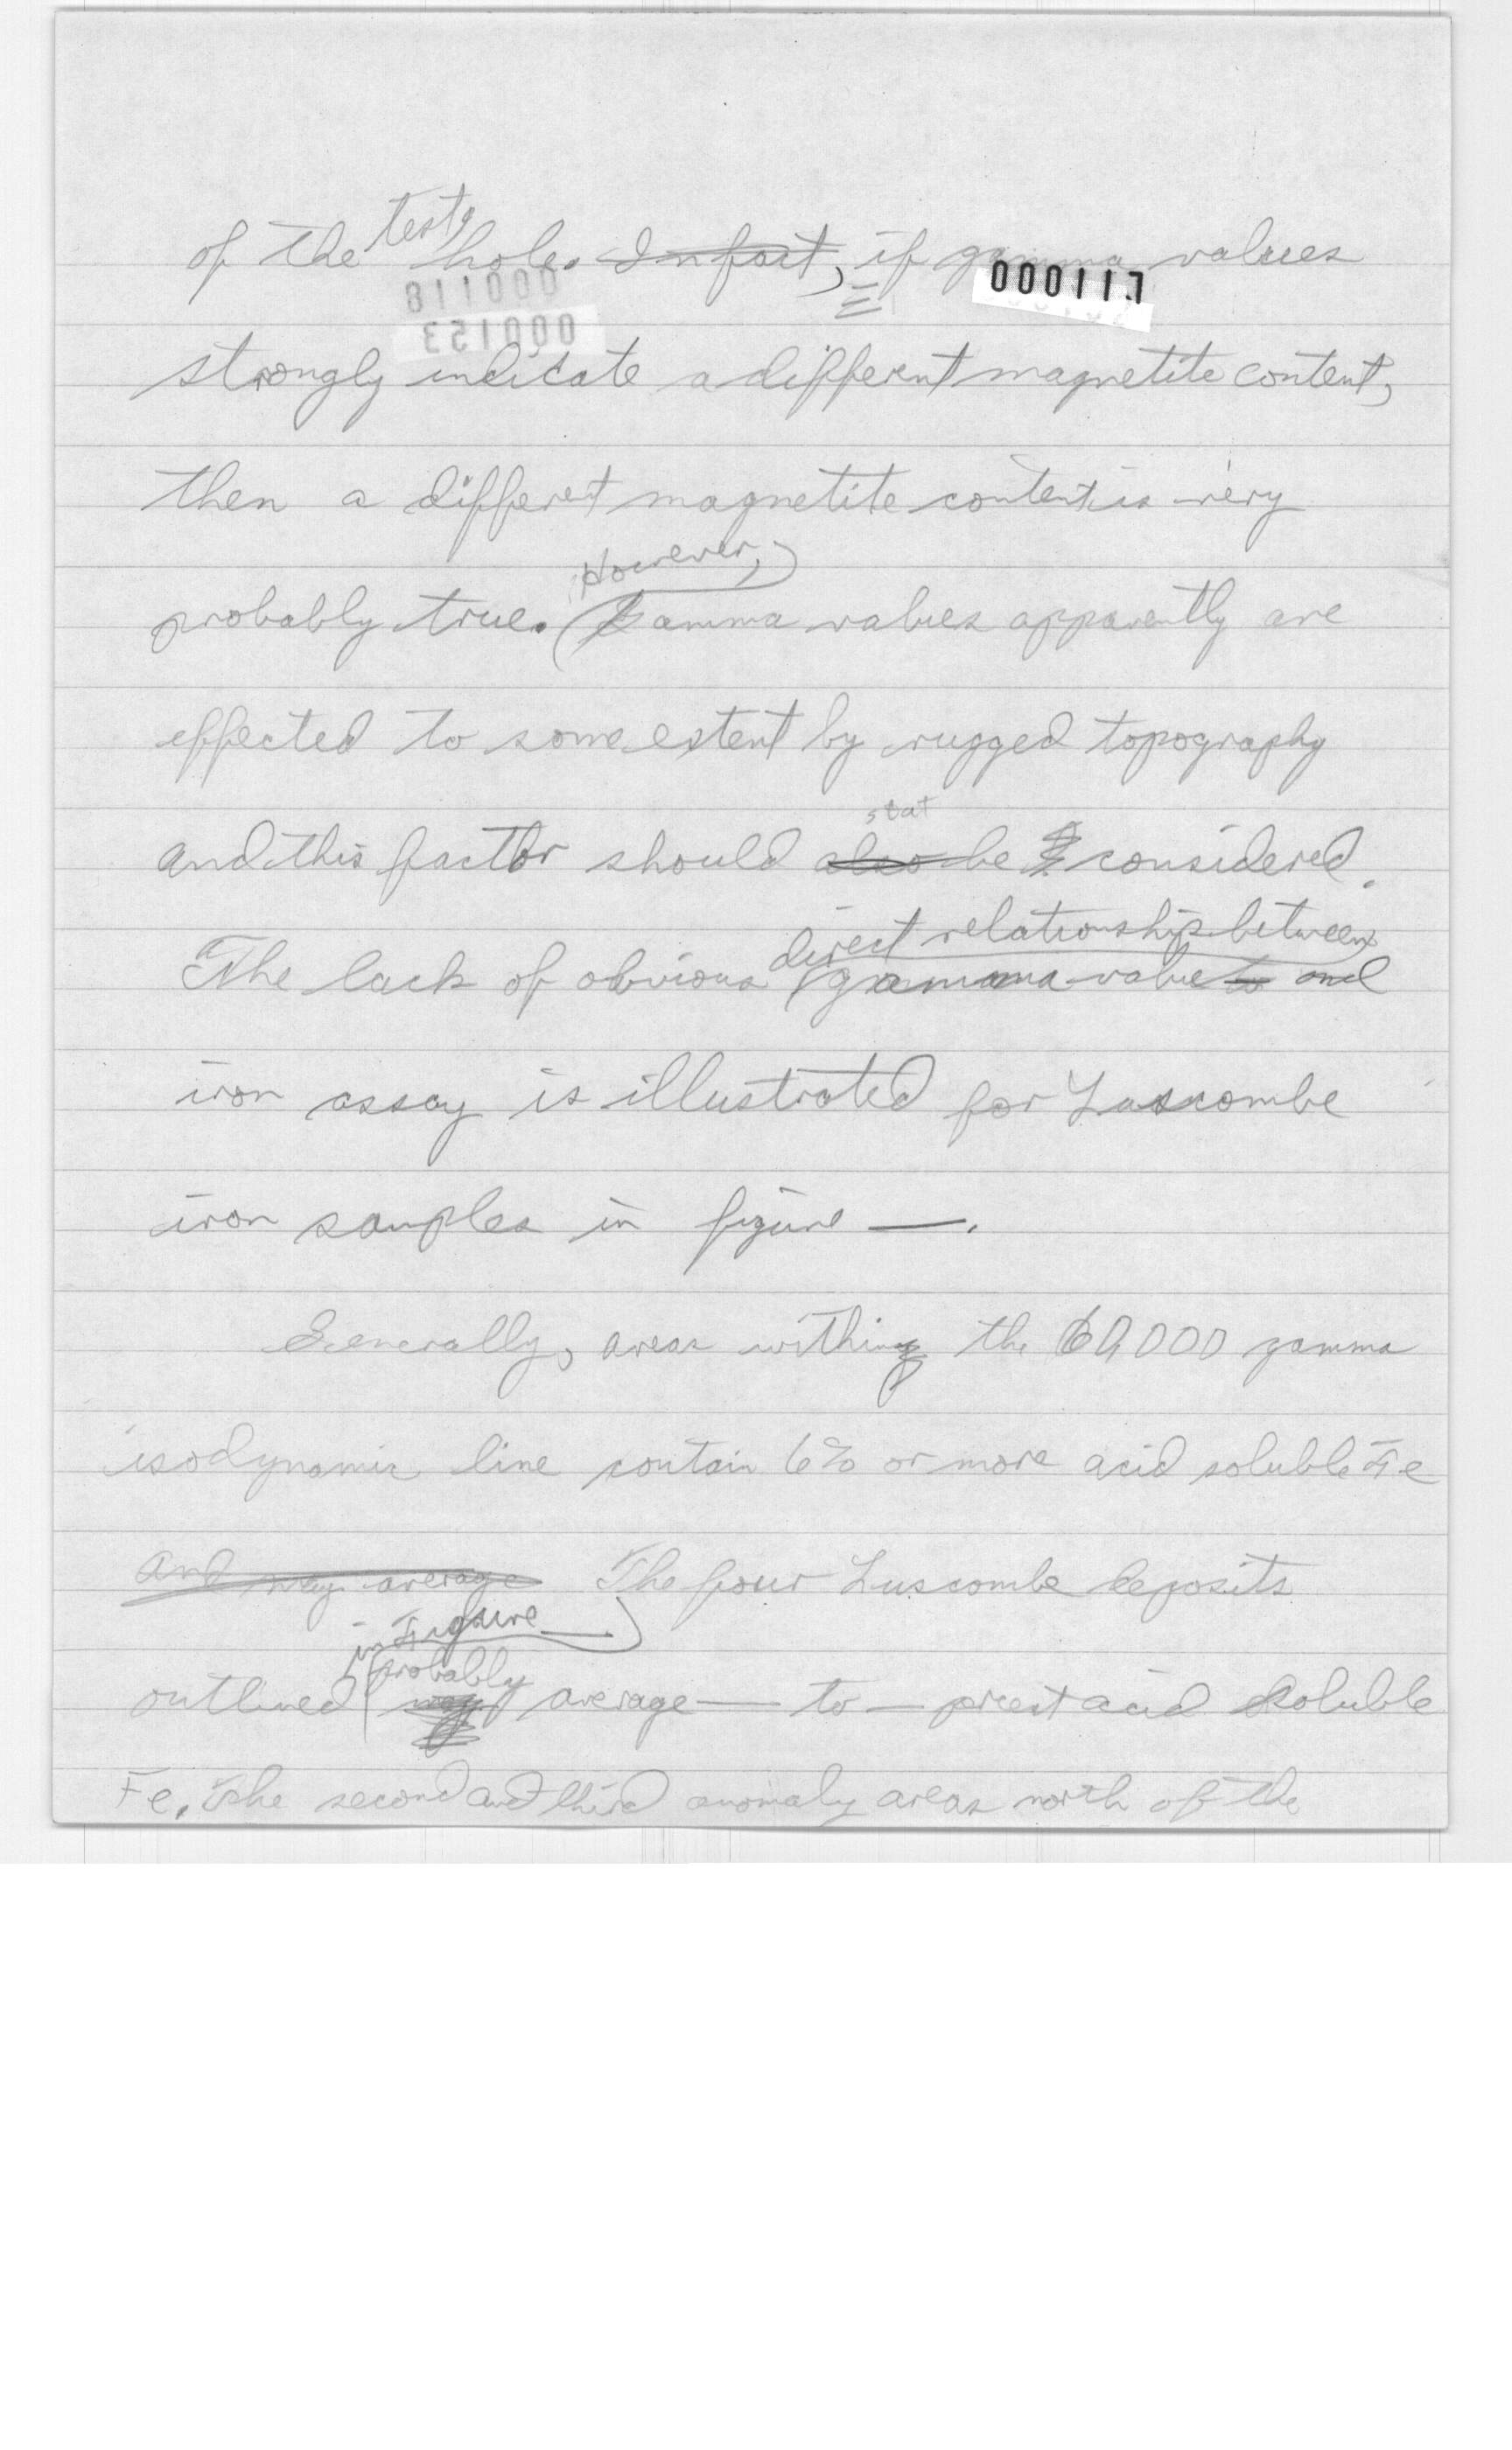 of the test hole. In fact, if gamma values
000117
000118
000123
strongly indicate a different magnetite content,
then a different magnetite content is very
However,
probably true. Gamma values apparently are
effected to some extent by rugged topography
stet
and this factor should also be considered.
direct relationship between
The lack of obvious gamma value and
iron assay is illustrated for Luscombe
iron samples in figure —.
Generally, areas within the 60000 gamma
isodynamic line contain 6% or more acid soluble Fe
and may average The four Luscombe deposits
in Figure —
probably
outlined may average — to — prcent acid soluble
Fe. The second and third anomaly areas north of the